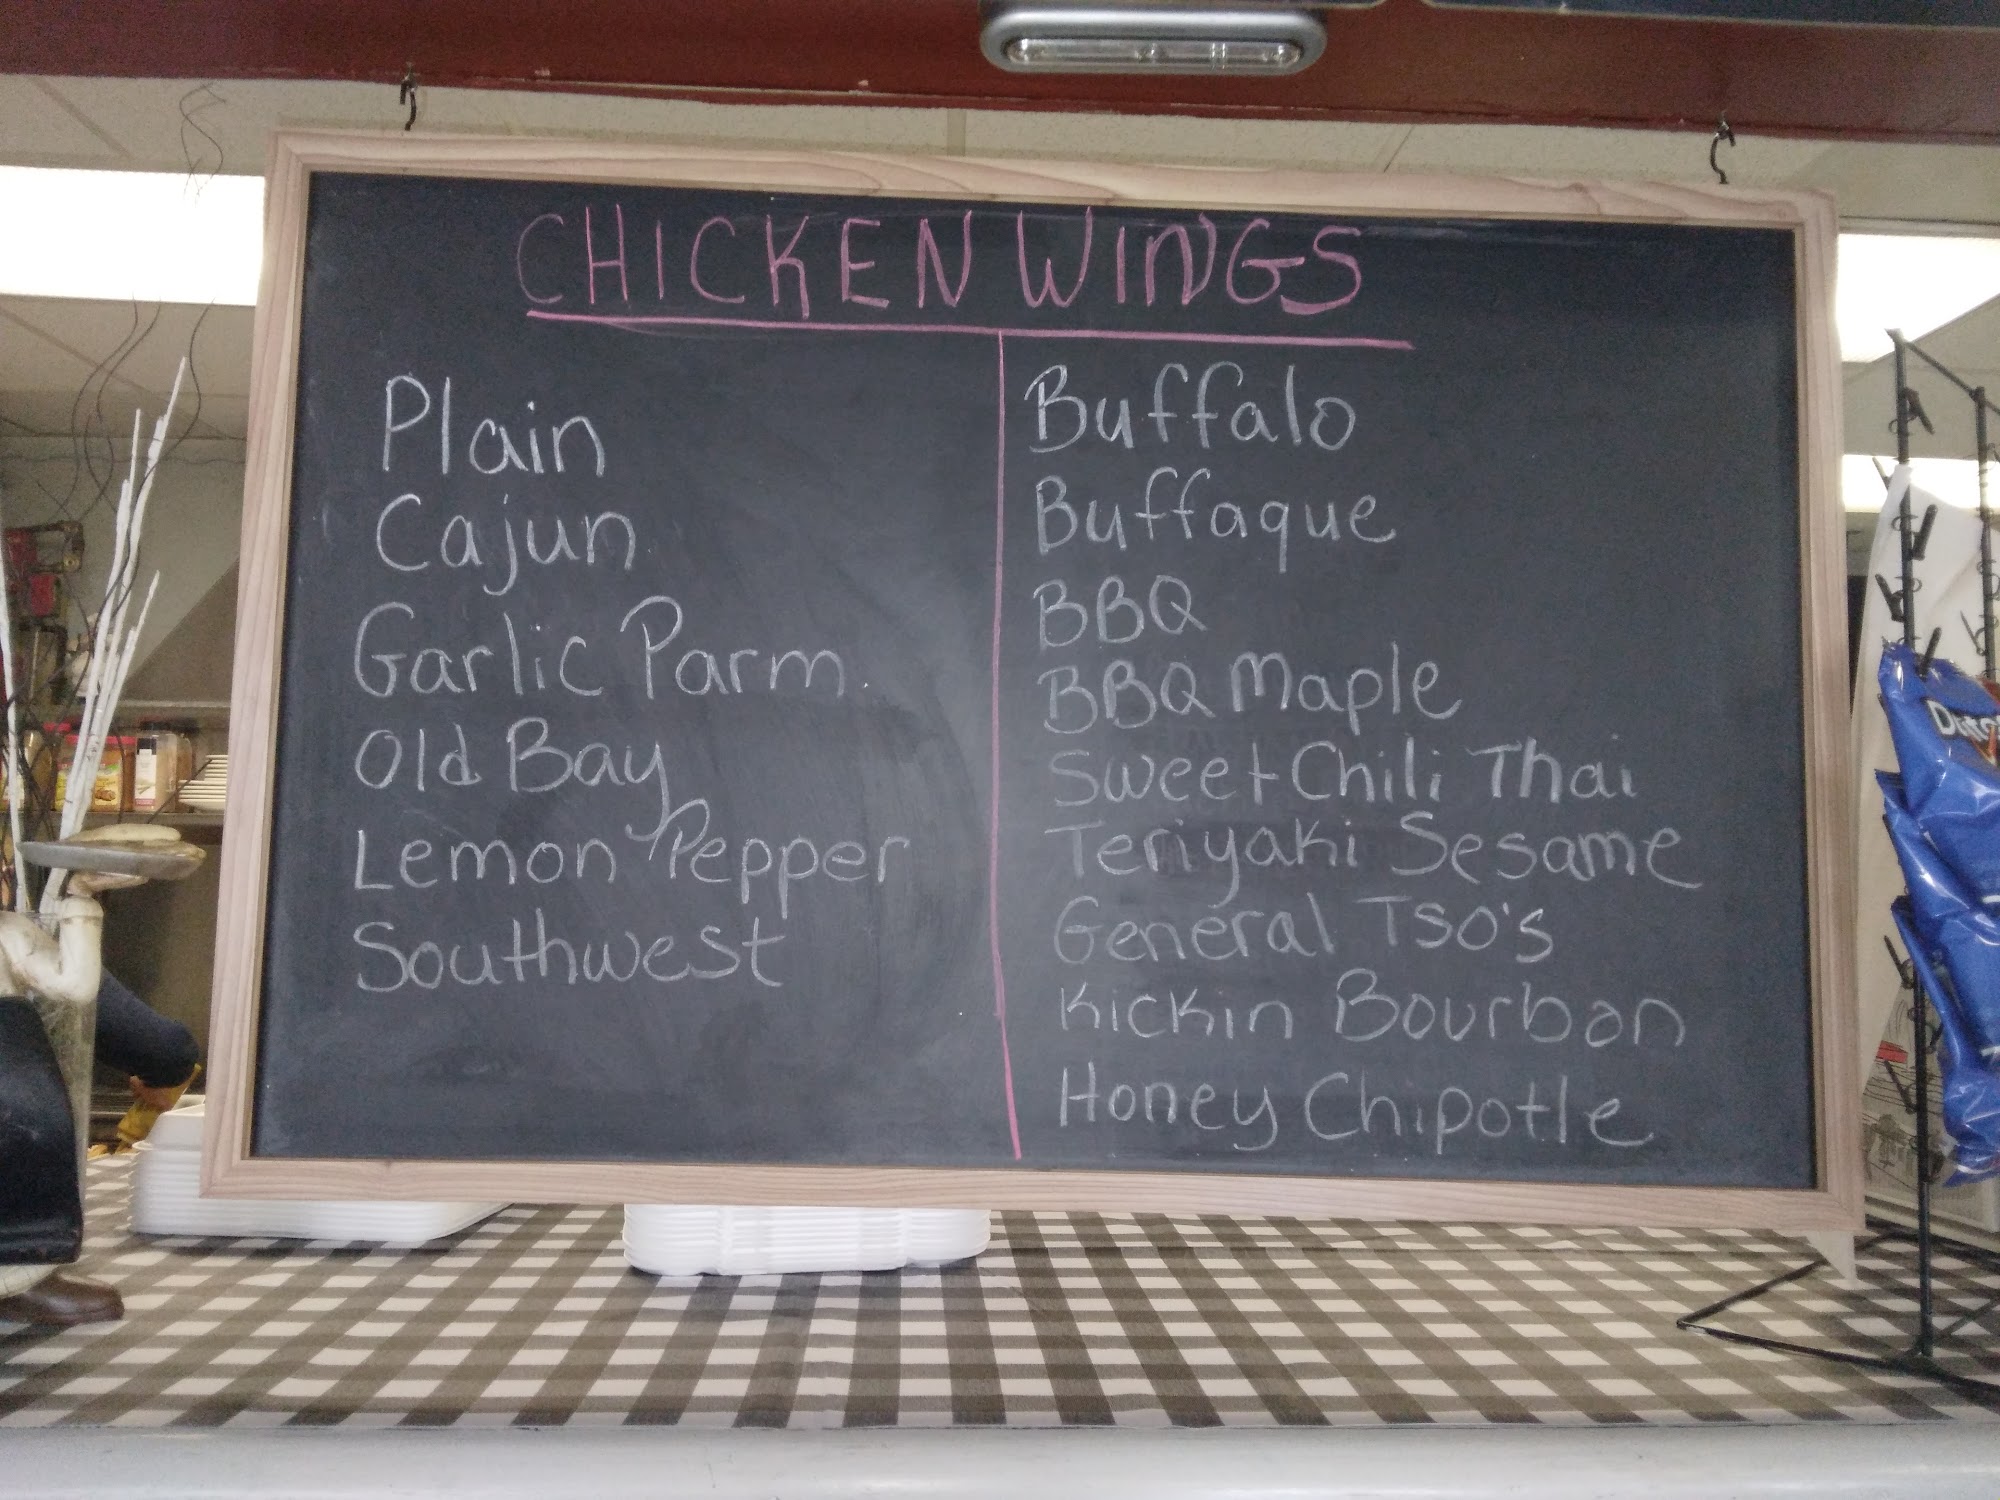 CHICKEN WINGS
Plain
Cajun
Garlic Parm.
Old Bay
Lemon Pepper
Southwest
Buffalo
Buffaque
BBQ
BBQ Maple
Sweet Chili Thai
Teriyaki Sesame
General Tso's
Kickin Bourbon
Honey Chipotle